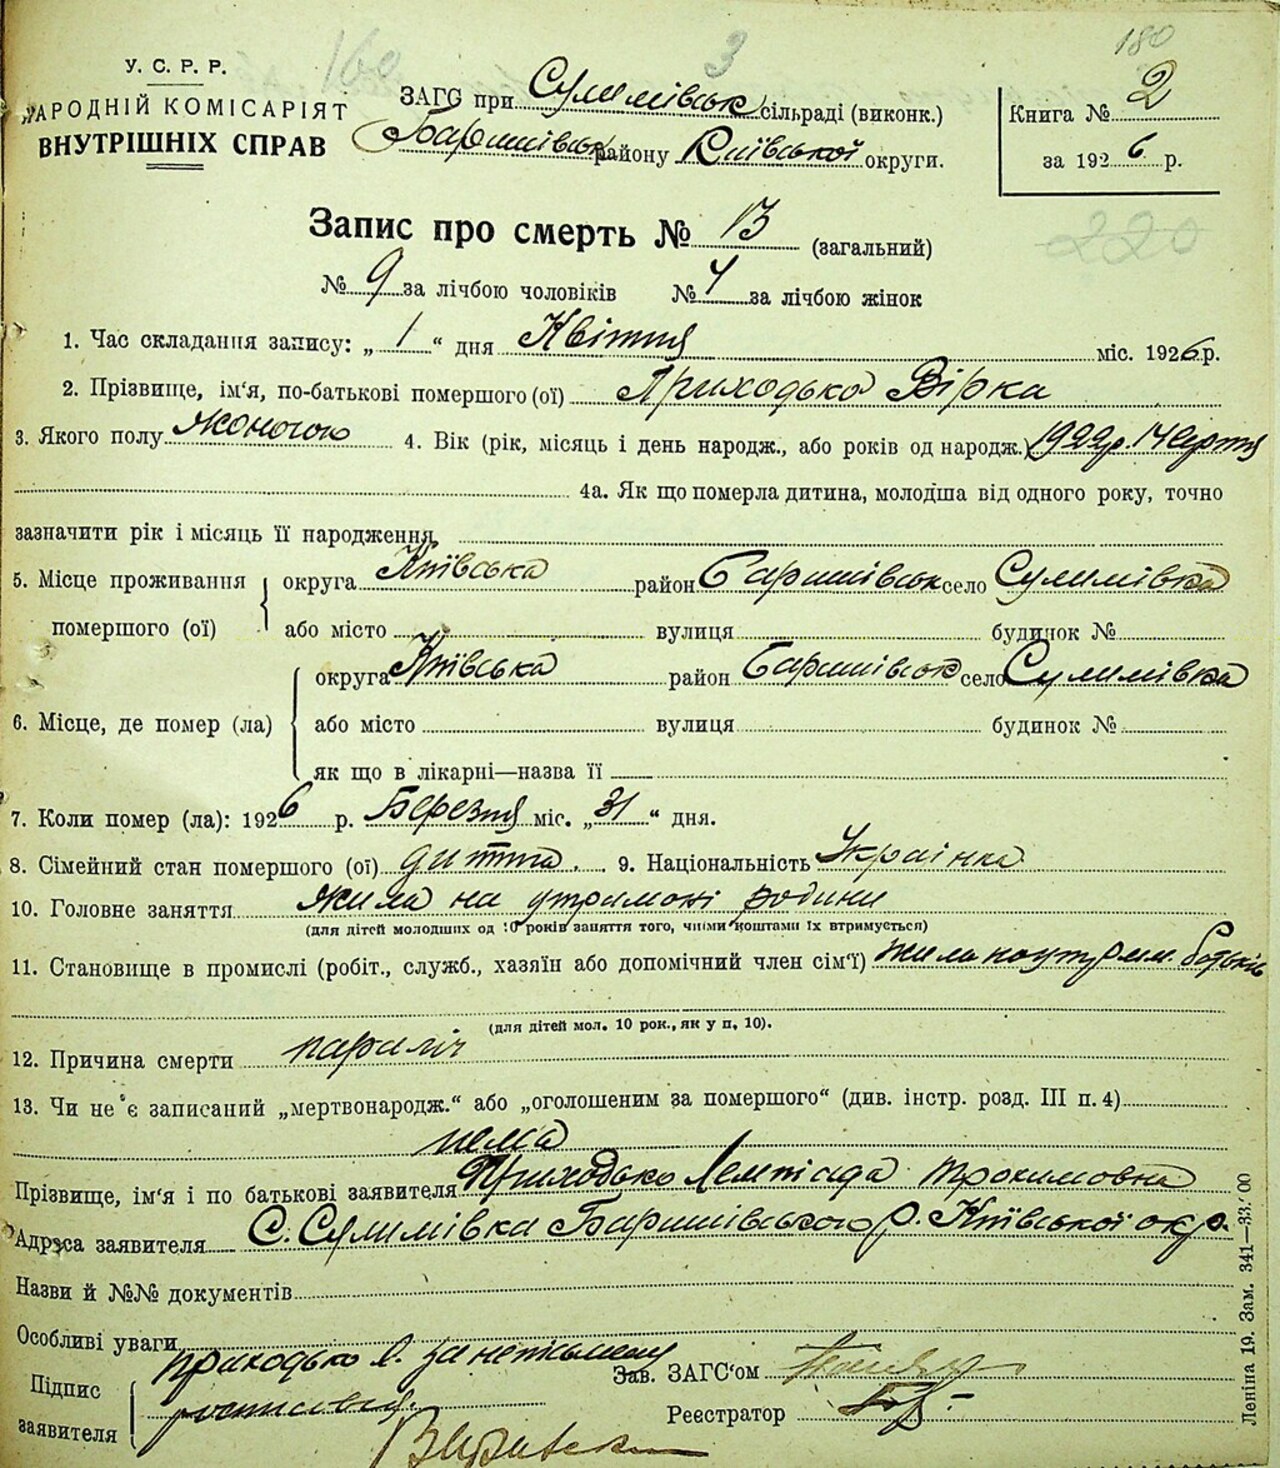 180
160 3
У. С. Р. Р.
НАРОДНІЙ КОМІСАРІЯТ
ВНУТРІШНІХ СПРАВ
ЗАГС при Сулимівськ сільраді (виконк.)
Баришівськ району Київської округи.
Книга № 2
за 1926 р.
Запис про смерть № 13 (загальний)
220
№ 9 за лічбою чоловіків № 4 за лічбою жінок
1. Час складання запису: „ 1 “ дня Квітня міс. 1926 р.
2. Прізвище, ім'я, по-батькові помершого (ої) Приходько Вірка
3. Якого полу жоночою 4. Вік (рік, місяць і день народж., або років од народж.) 1922 р.
4а. Як що померла дитина, молодша від одного року, точно
зазначити рік і місяць її народження
5. Місце проживання помершого (ої) округа Київська район Баришівськ село Сулимівка
або місто вулиця будинок №
6. Місце, де помер (ла) округа Київська район Баришівськ село Сулимівка
або місто вулиця будинок №
як що в лікарні—назва її
7. Коли помер (ла): 1926 р. Березня міс. „31“ дня.
8. Сімейний стан помершого (ої) дитина. 9. Національність Українка
10. Головне заняття жила на утримані родини
(для дітей молодших од 10 років заняття того, чиїми коштами їх втримується)
11. Становище в промислі (робіт., служб., хазяїн або допомічний член сім'ї) жила на утрим. батьків
(для дітей мол. 10 рок., як у п. 10).
12. Причина смерти параліч
13. Чи не є записаний „мертвонародж.“ або „оголошеним за помершого“ (див. інстр. розд. III п. 4)
нема
Прізвище, ім'я і по батькові заявителя Приходько Трохимовна
Адреса заявителя С. Сулимівка Баришівського р. Київської окр.
Назви й №№ документів
Особливі уваги
Підпис заявителя Приходько за неписьмену
Зав. ЗАГС'ом
Реєстратор
Леніна 19. Зам. 341—33.'00